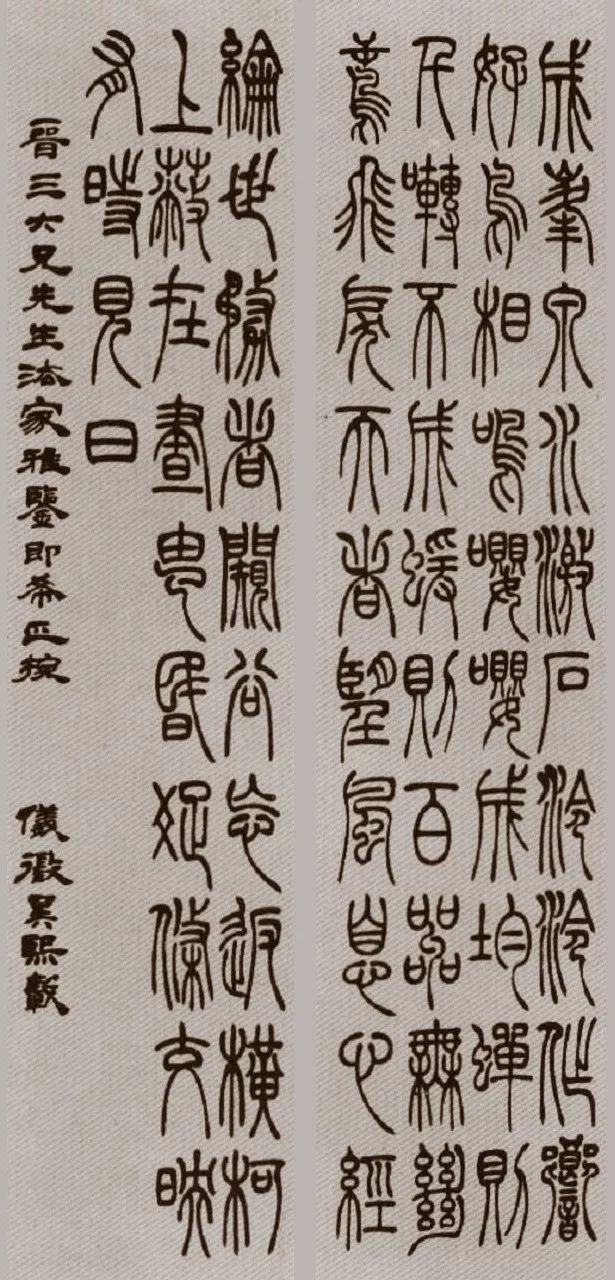 成峯泉水激石泠泠作響
好鳥相鳴嚶嚶成均蟬則
千囀不成蝯則百嘂無絕
鳶飛戾天者望風息心經
綸世務者闚谷忘返橫柯
上蔽在晝昏疏條交映
有時見日
晉三大兄先生法家雅鑒即希正捥
儀徵吳熙載